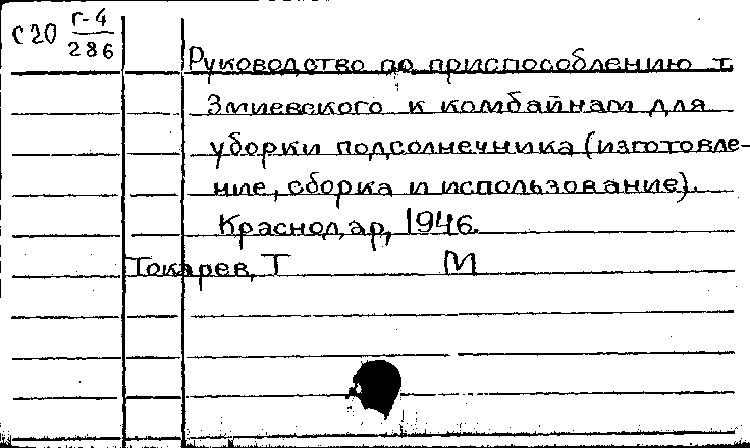 С20 Г-4
286
Руководство по приспособлению т.
Змиевского к комбайнам для
уборки подсолнечника (изготовле-
ние, сборка и использование).
Краснодар, 1946.
Токарев, Т М